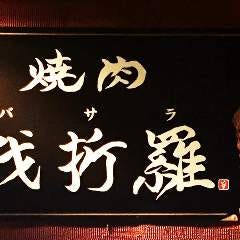 焼肉
バサラ
伐折羅